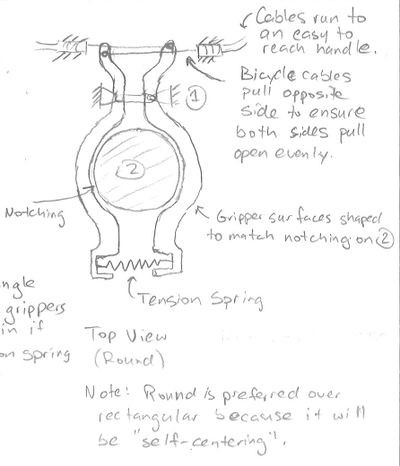 Cables run to
an easy to
reach handle.
Bicycle cables
pull opposite
side to ensure
both sides pull
open evenly.
①
②
Notching
Gripper surfaces shaped
to match notching on ②
Tension Spring
ngle
grippers
in if
on spring
Top View
(Round)
Note: Round is preferred over
rectangular because it will
be "self-centering".